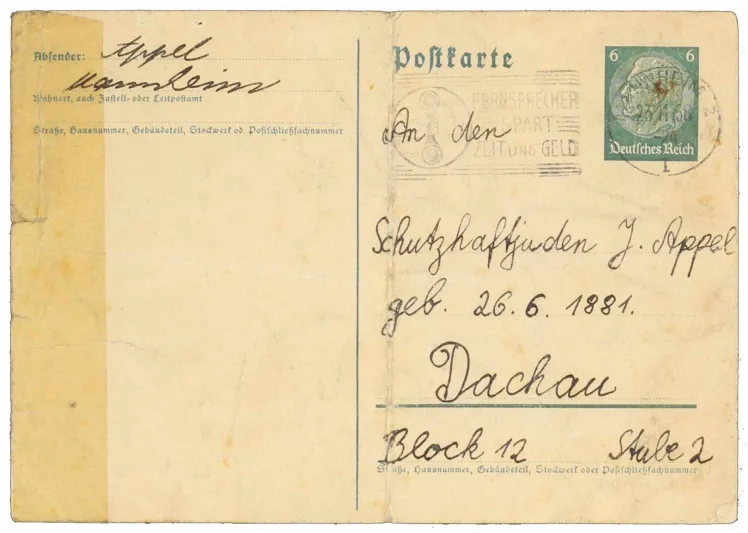 Absender: Appel
Mannheim
Wohnort, auch Zustell- oder Leitpostamt
Straße, Hausnummer, Gebäudeteil, Stockwerk od. Postschließfachnummer
Postkarte
6 6
Deutsches Reich
MANNHEIM 2
1
FERNSPRECHER
SPART
ZEIT UND GELD
An den
Schutzhaftjuden J. Appel
geb. 26. 6. 1881.
Dachau
Block 12 Stube 2
Straße, Hausnummer, Gebäudeteil, Stockwerk oder Postschließfachnummer